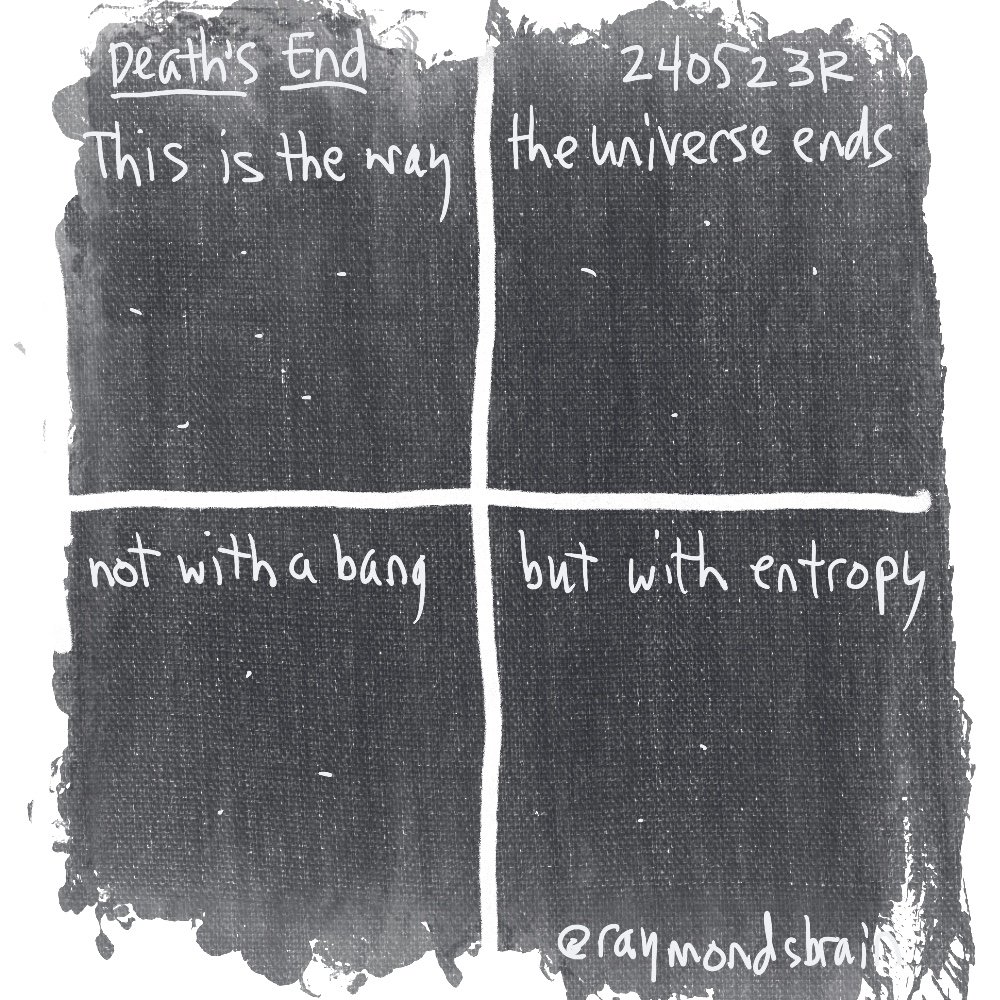 Death's End
240523R
This is the way
the universe ends
not with a bang
but with entropy
@raymondsbrain